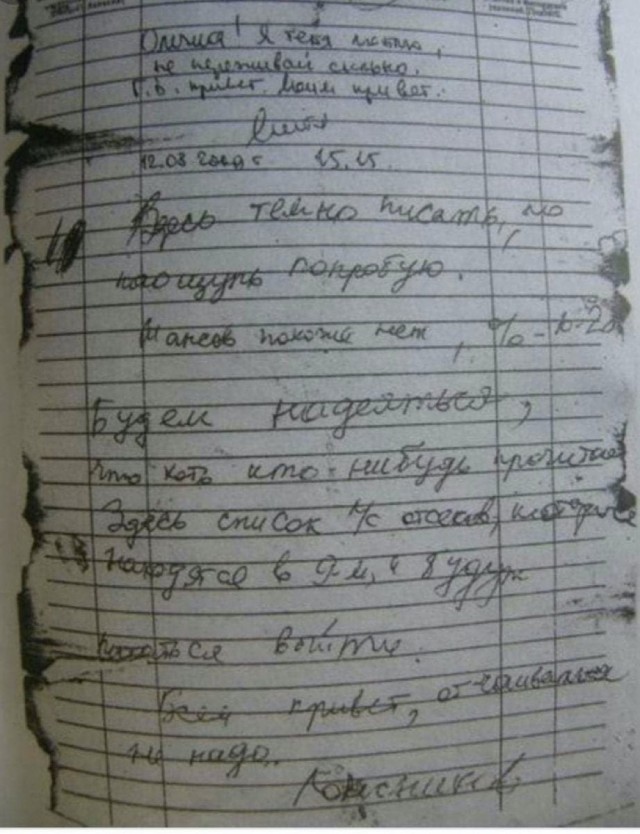 Олечка! Я тебя люблю,
не переживай сильно.
Г.В. привет. Моим привет.
Митя
12.08.2000 г 15.15.
Здесь темно писать, но
наощупь попробую.
Шансов похоже нет, %-10-20
Будем надеяться,
что хоть кто-нибудь прочитает
Здесь список л/с отсеков, которые
находятся в 9-м, и будут
пытаться выйти.
Всем привет, отчаиваться
не надо.
Колесников